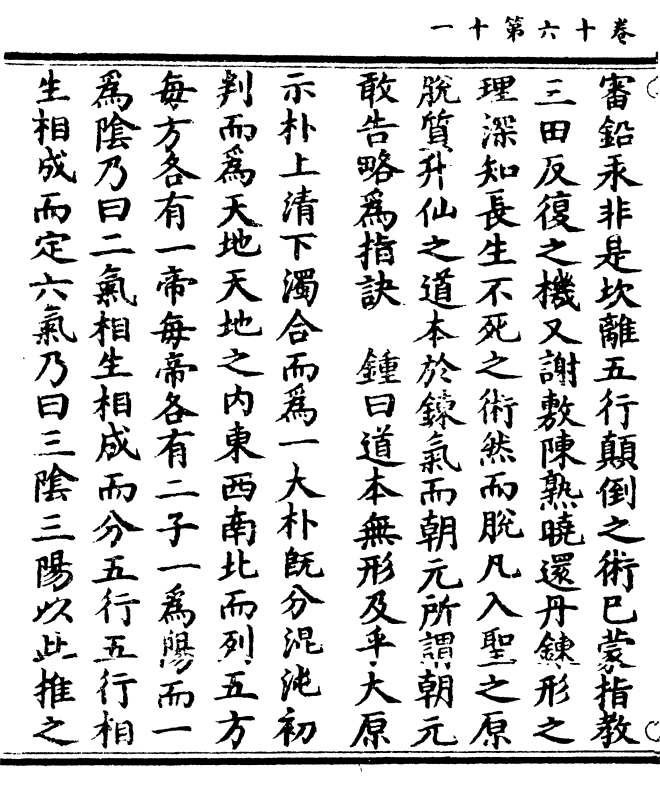 卷十六第十一
審鉛汞非是坎離五行顛倒之術已蒙指教
三田反復之機又謝敷陳熟曉還丹鍊形之
理深知長生不死之術然而脫凡入聖之原
脫質升仙之道本於鍊氣而朝元所謂朝元
敢告略爲指訣　鍾曰道本無形及乎大原
示朴上清下濁合而爲一大朴旣分混沌初
判而爲天地天地之内東西南北而列五方
每方各有一帝每帝各有二子一爲陽而一
爲陰乃曰二氣相生相成而分五行五行相
生相成而定六氣乃曰三陰三陽以此推之